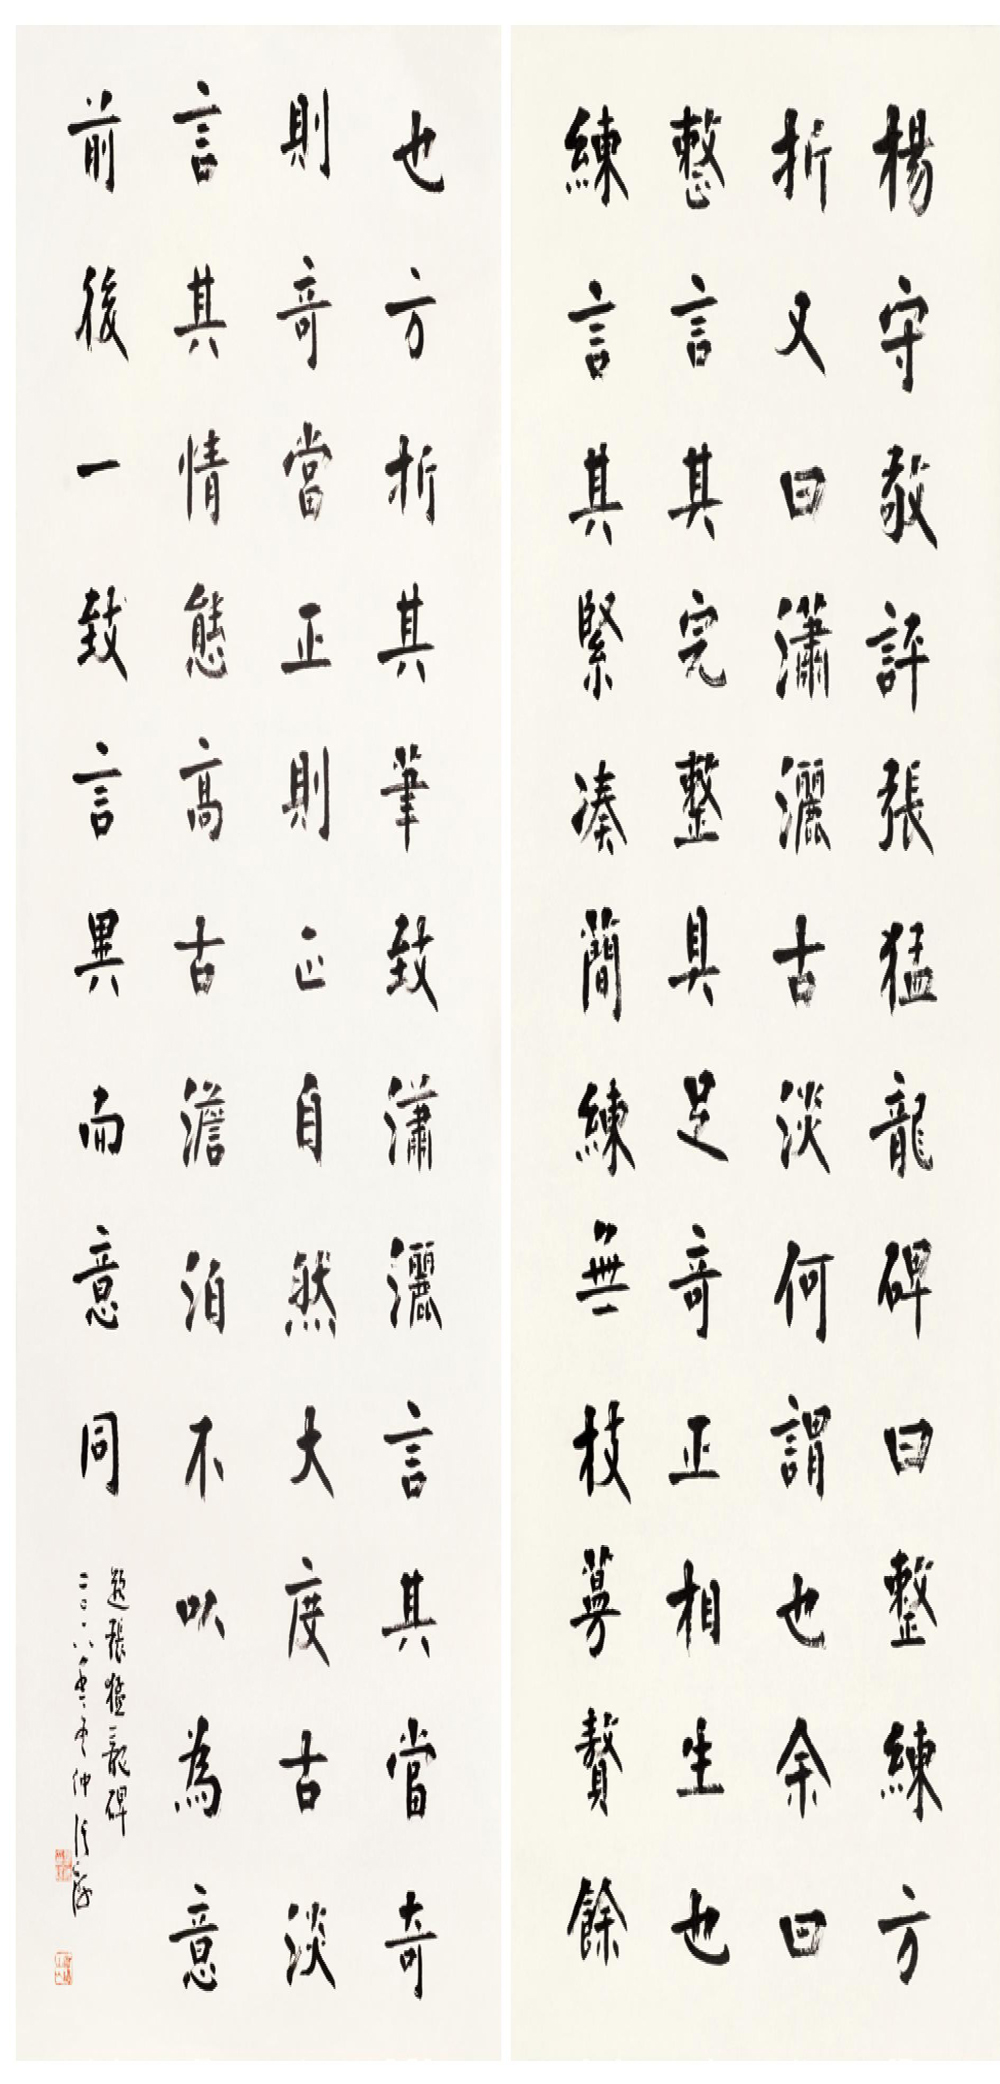 楊守敬評張猛龍碑曰整練方
折又曰瀟灑古淡何謂也余曰
整言其完整具足奇正相生也
練言其緊凑簡練無枝蔓贅餘
也方折其筆致瀟灑言其當奇
則奇當正則正自然大度古淡
言其情態高古澹泊不以為意
前後一致言異而意同
題張猛龍碑
二〇一八年